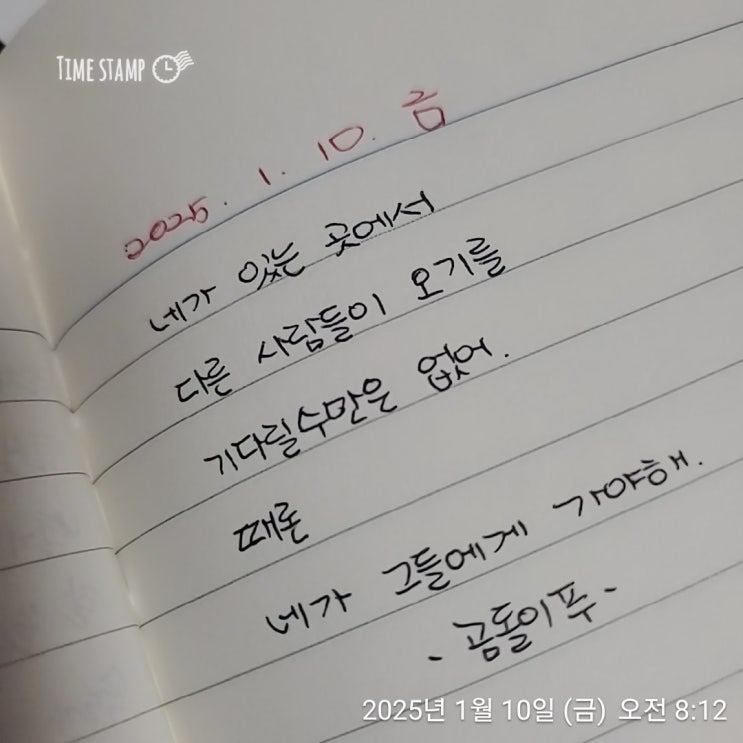 TIME STAMP
2025. 1. 10. 금
네가 있는 곳에서
다른 사람들이 오기를
기다릴수만은 없어.
때론
네가 그들에게 가야해.
- 곰돌이푸 -
2025년 1월 10일 (금) 오전 8:12